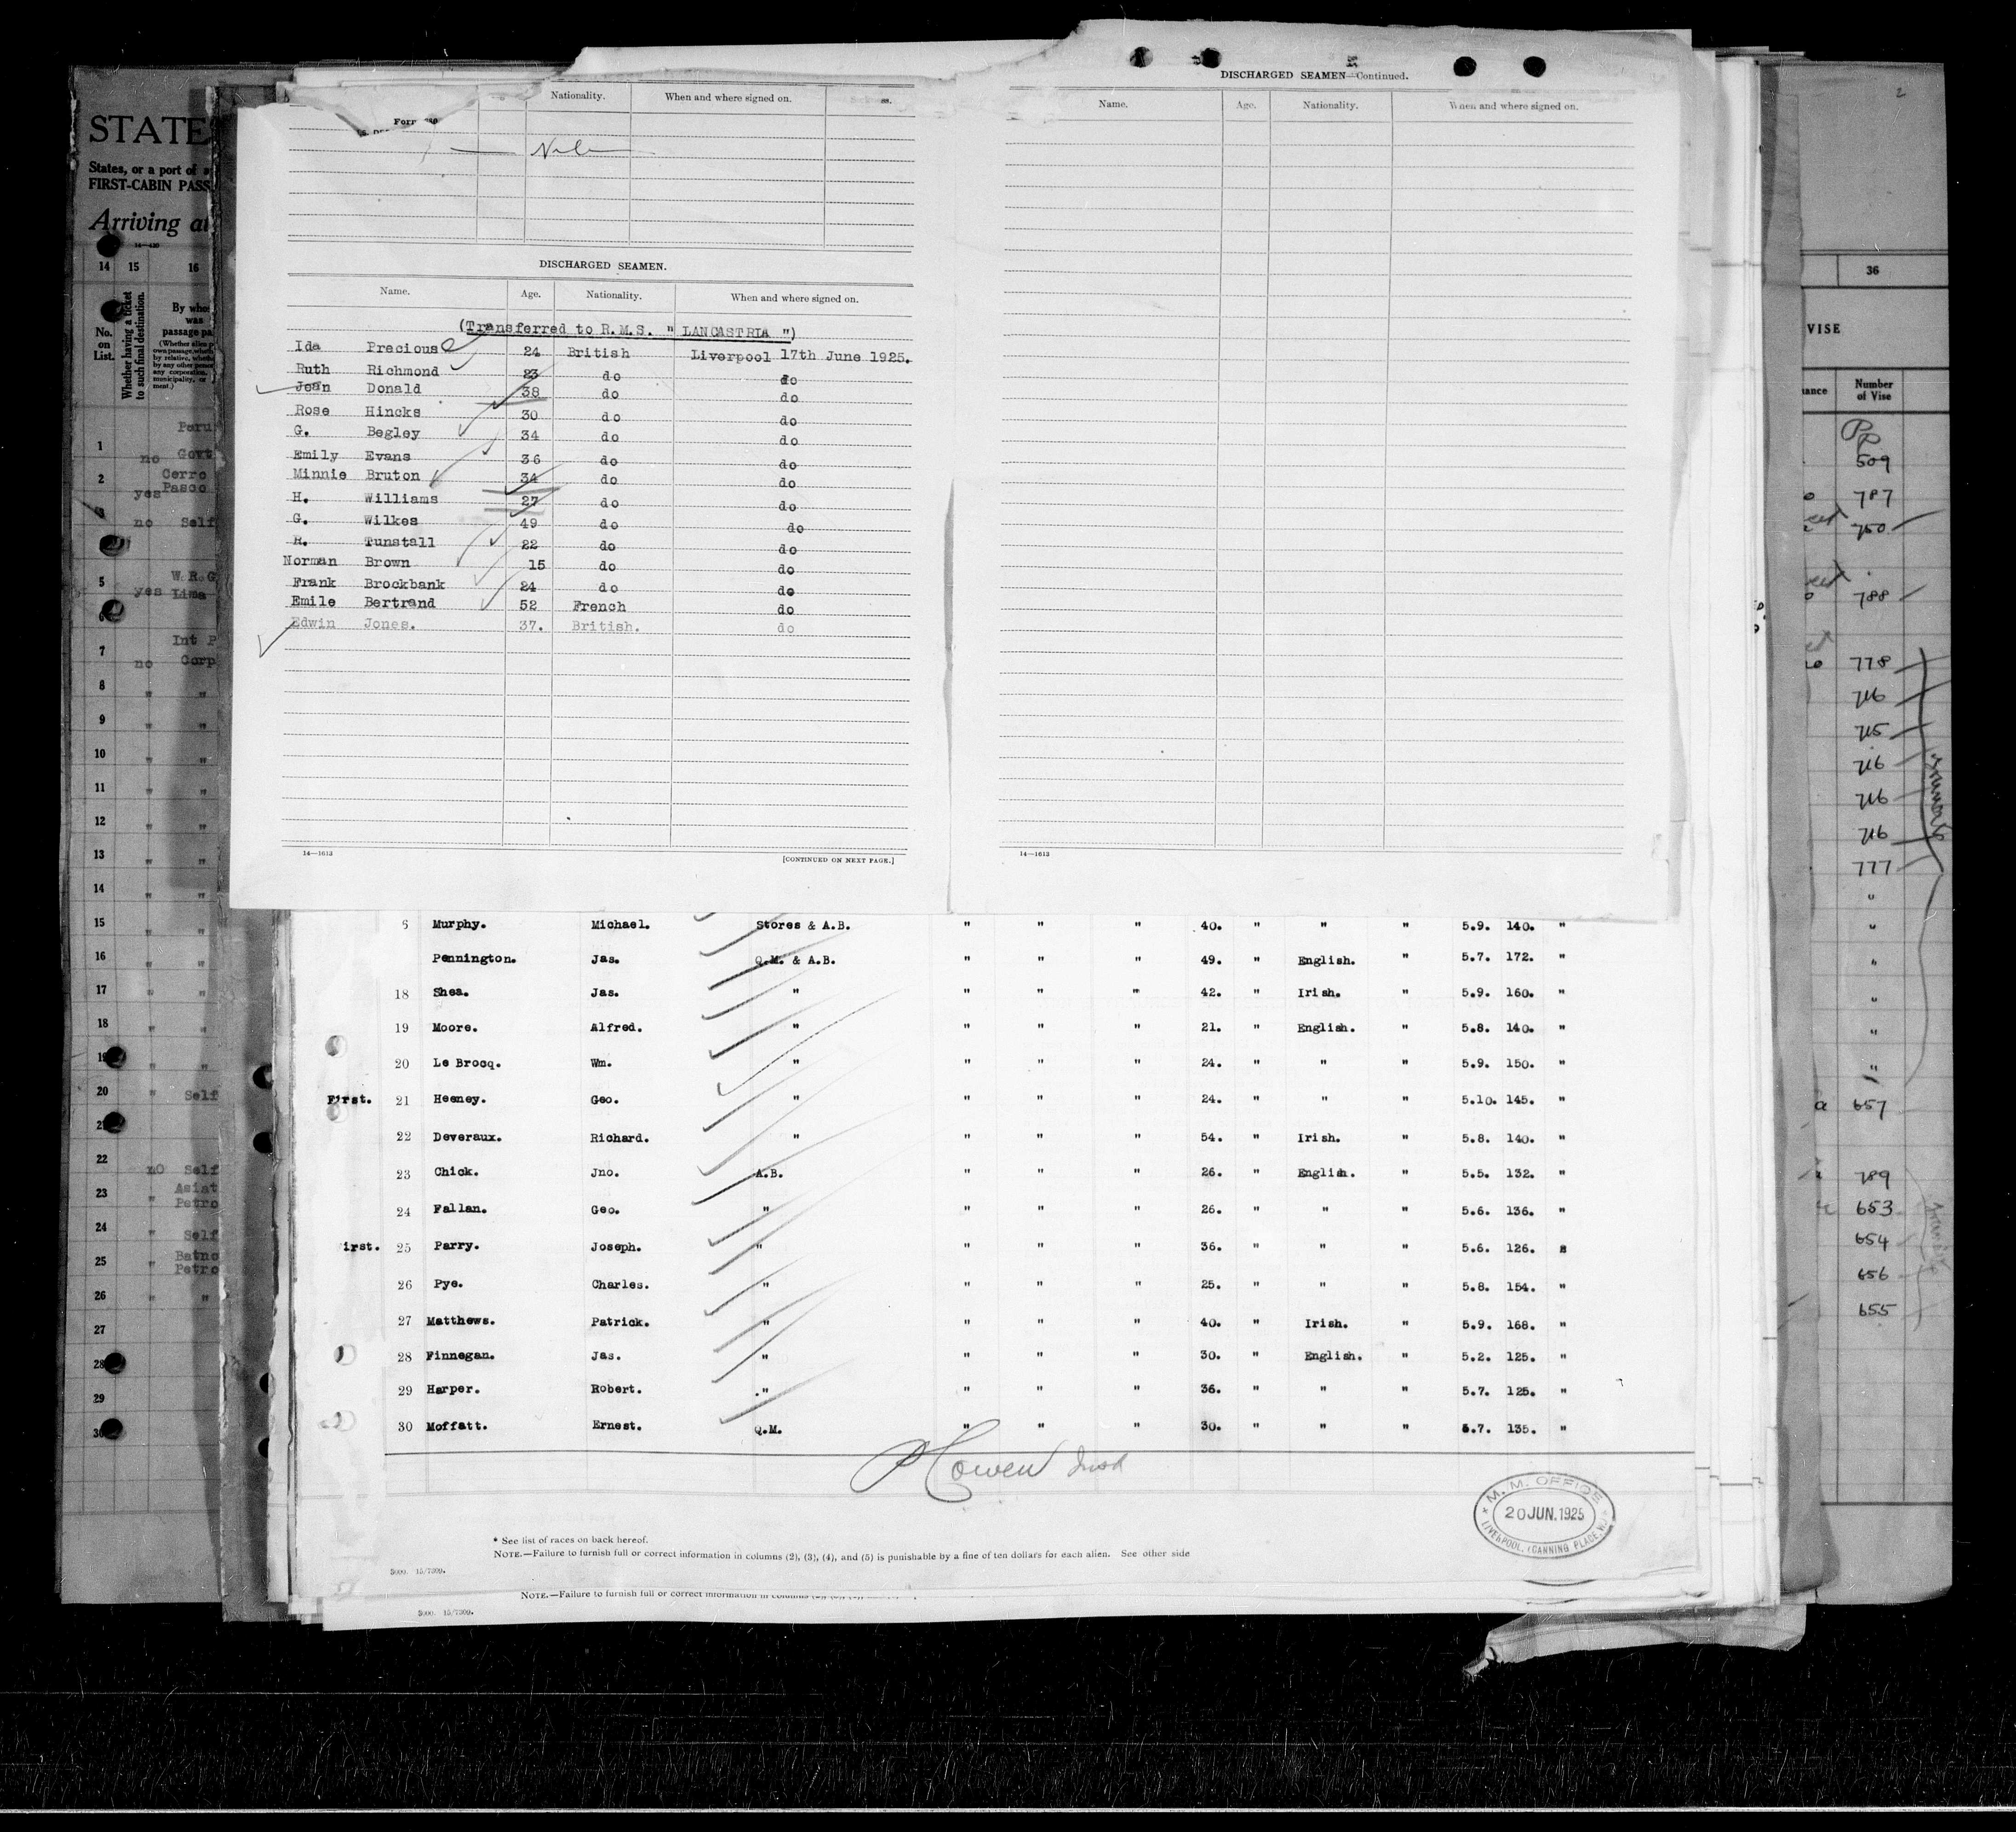 DISCHARGED SEAMEN—Continued.
Nationality. When and where signed on. ss.
Name. Age. Nationality. When and where signed on.
Form
DISCHARGED SEAMEN.
Name. Age. Nationality. When and where signed on.
(Transferred to R.M.S. " LANCASTRIA ")
Ida Precious 24 British Liverpool 17th June 1925.
Ruth Richmond 23 do do
Jean Donald 38 do do
Rose Hincks 30 do do
G. Begley 34 do do
Emily Evans 36 do do
Minnie Bruton 34 do do
H. Williams 27 do do
G. Wilkes 49 do do
R. Tunstall 22 do do
Norman Brown 15 do do
Frank Brockbank 24 do do
Emile Bertrand 52 French do
Edwin Jones. 37. British. do
14—1613 [CONTINUED ON NEXT PAGE.]
14—1613
6 Murphy. Michael. Stores & A.B. " " " 40. " " " 5.9. 140. "
Pennington. Jas. Q.M. & A.B. " " " 49. " English. " 5.7. 172. "
18 Shea. Jas. " " " " 42. " Irish. " 5.9. 160. "
19 Moore. Alfred. " " " " 21. " English. " 5.8. 140. "
20 Le Brocq. Wm. " " " " 24. " " " 5.9. 150. "
First. 21 Heeney. Geo. " " " " 24. " " " 5.10. 145. "
22 Deveraux. Richard. " " " " 54. " Irish. " 5.8. 140. "
23 Chick. Jno. A.B. " " " 26. " English. " 5.5. 132. "
24 Fallan. Geo. " " " " 26. " " " 5.6. 136. "
irst. 25 Parry. Joseph. " " " " 36. " " " 5.6. 126. "
26 Pye. Charles. " " " " 25. " " " 5.8. 154. "
27 Matthews. Patrick. " " " " 40. " Irish. " 5.9. 168. "
28 Finnegan. Jas. " " " " 30. " English. " 5.2. 125. "
29 Harper. Robert. " " " " 36. " " " 5.7. 125. "
30 Moffatt. Ernest. Q.M. " " " 30. " " " 5.7. 135. "
M. M. OFFICE
20 JUN. 1925
LIVERPOOL. (CANNING PLACE.)
* See list of races on back hereof.
NOTE.—Failure to furnish full or correct information in columns (2), (3), (4), and (5) is punishable by a fine of ten dollars for each alien. See other side
5000. 15/7309.
NOTE.—Failure to furnish full or correct information in columns
5000. 15/7309.
STATE
States, or a port of
FIRST-CABIN PASS
Arriving at
14—430
14 15 16
No. on List.
Whether having a ticket to such final destination.
By who
was
passage pa
(Whether alien p
own passage, wheth
by relative, wheth
by any other perso
any corporation,
municipality, or
ment.)
Peru
1 no Govt
2 Cerro
yes Pasco
no Self
5 W.R.G
yes Lima
7 Int P
no Corp
8 " "
9 " "
10 " "
11 " "
12 " "
13 " "
14 " "
15 " "
16 " "
17 " "
18 " "
19 " "
20 " Self
21
22 no Self
23 Asiat
" Petro
24 " Self
25 Batno
" Petro
26 " "
27
28
29
30
2
36
VISE
Number of Vise
509
787
750
788
778
716
715
716
716
716
777
"
"
"
"
"
"
657
789
653
654
656
655